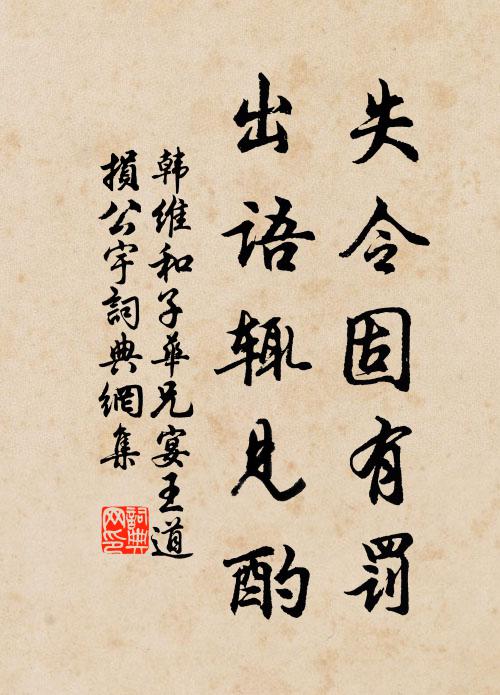 失令固有罚
出语辄见酌
韩维和子華兄宴王道
損公宇詞典網集
詞典网印